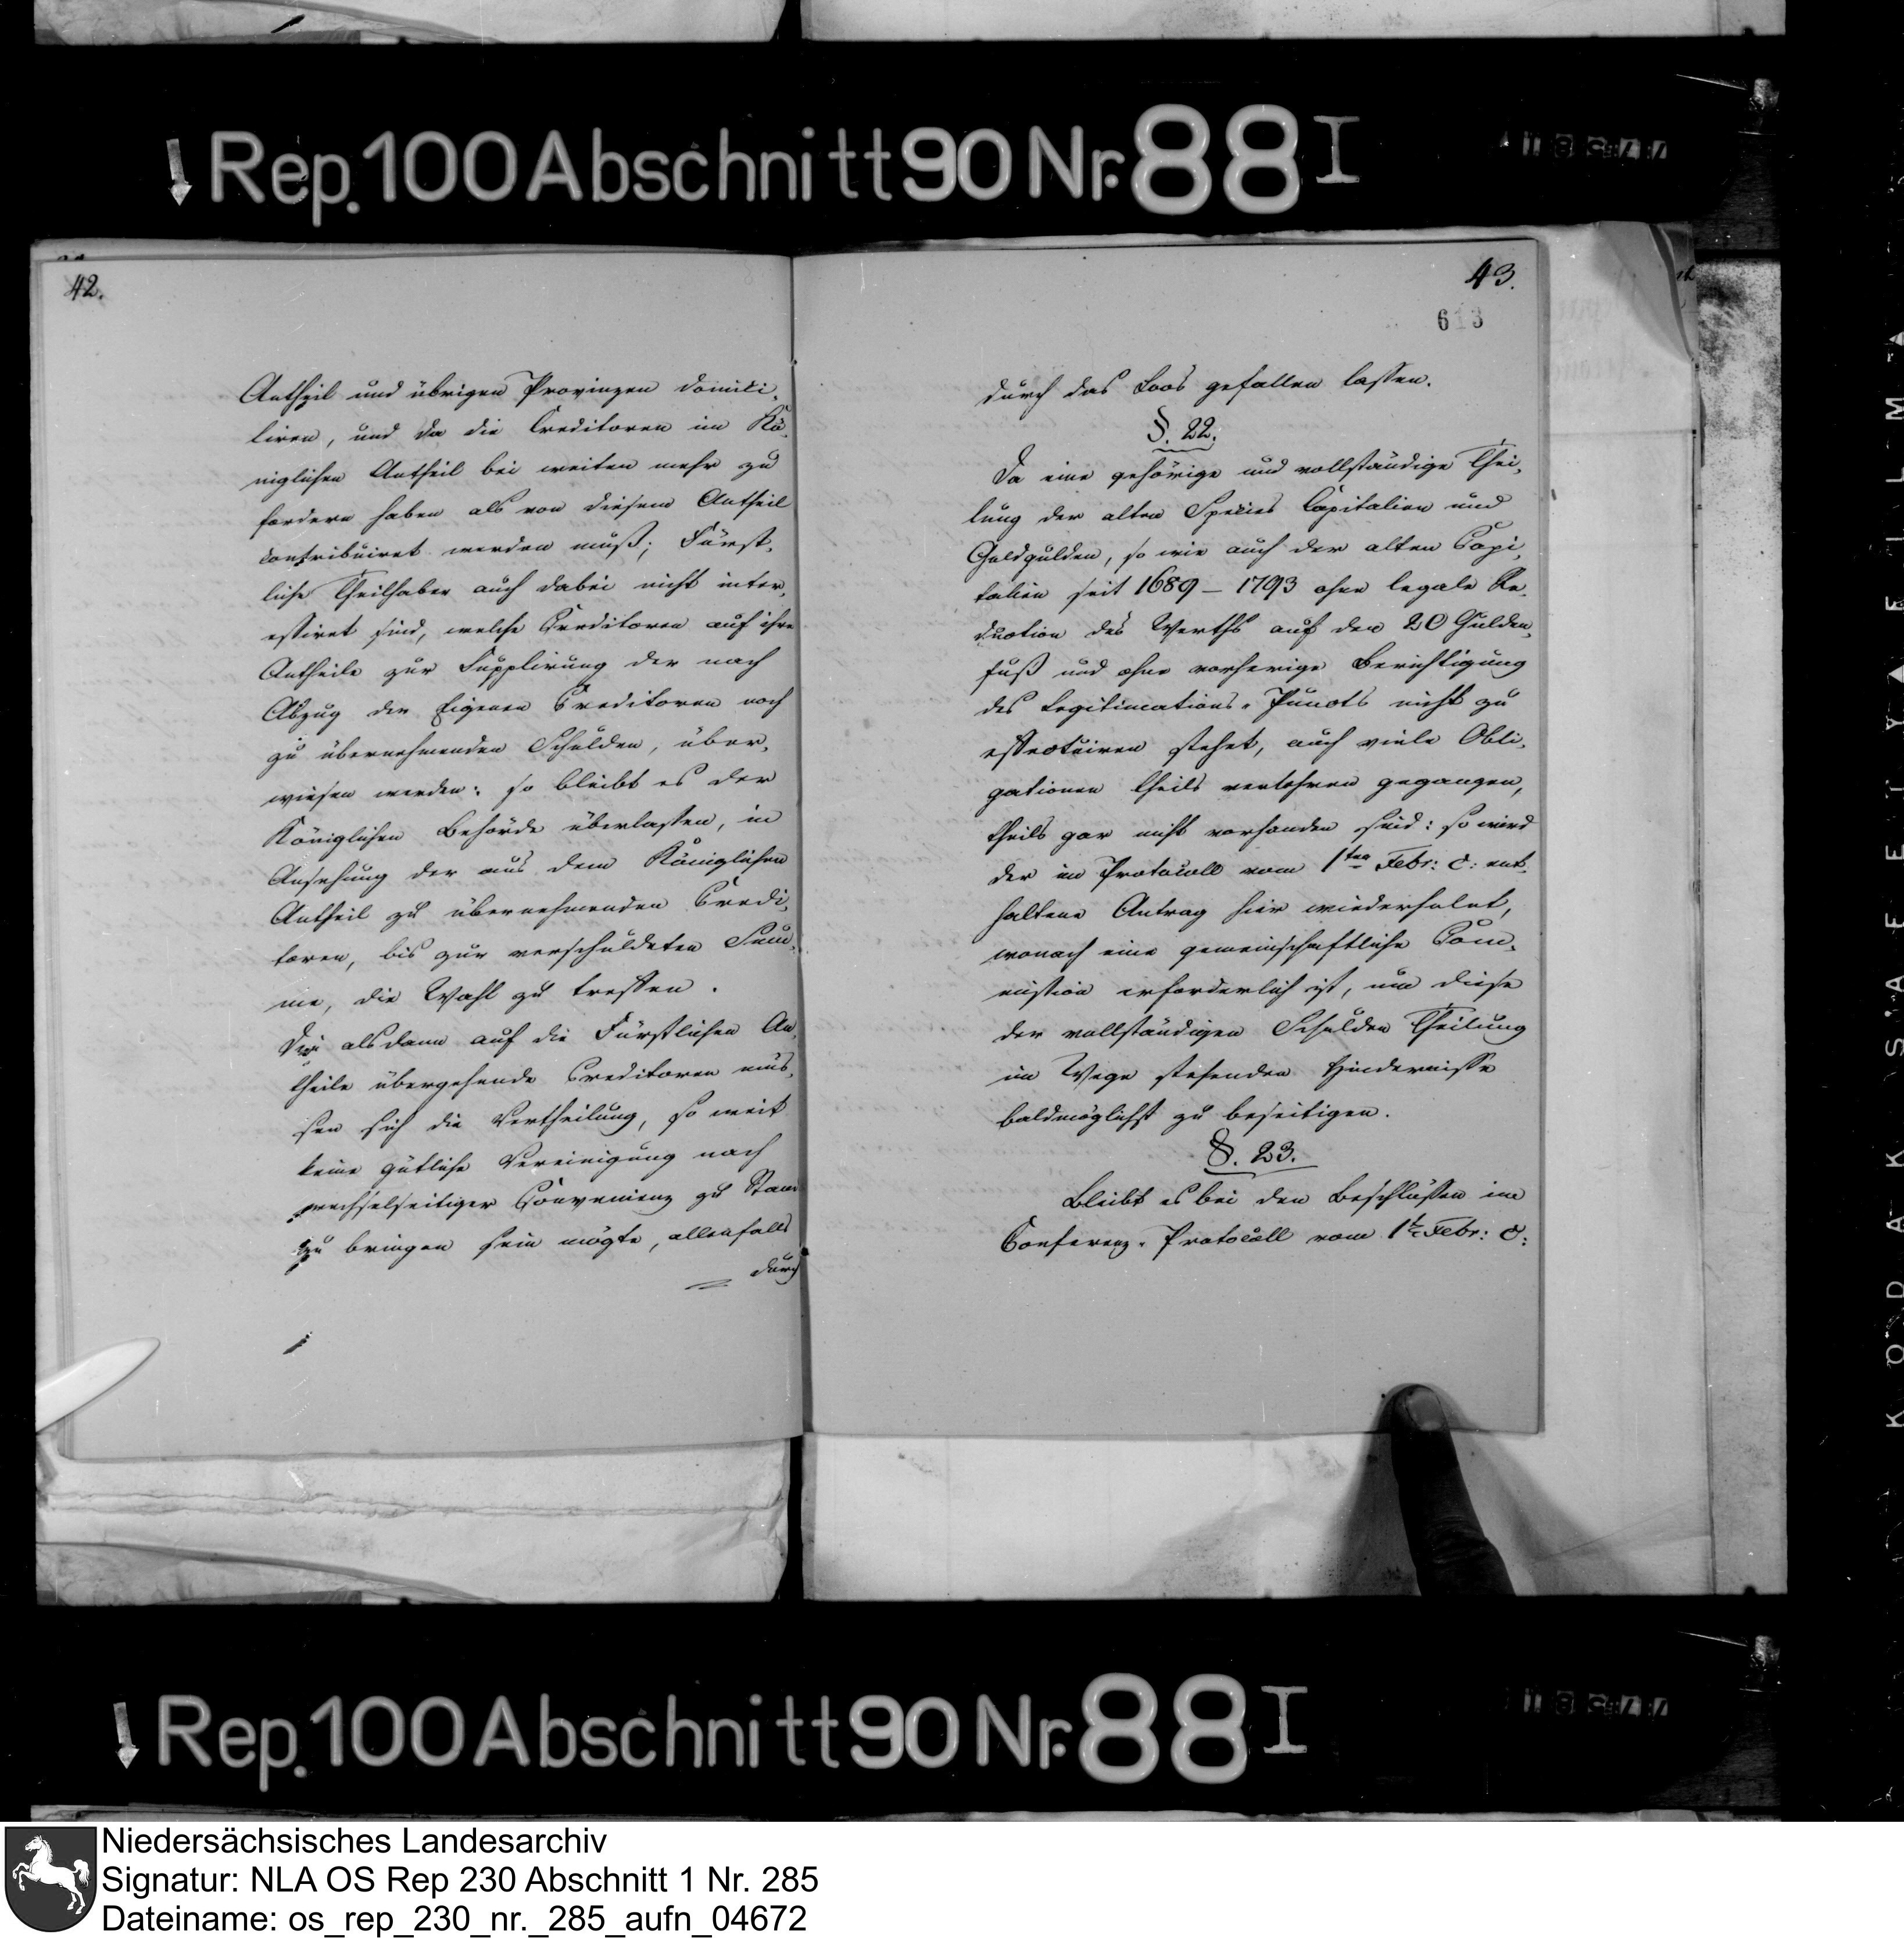 Rep. 100 Abschnitt 90 Nr. 88 I
42.
Antheil und übrigen Provinzen domici-
liren, und da die Creditoren im Kö-
niglichen Antheil bei weiten mehr zu
fordern haben als von diesem Antheil
contribuiret werden muß; Fürst-
liche Theilhaber auch dabei nicht inter-
essiret sind, welche Creditoren auf ihre
Antheile zur Supplirung der nach
Abzug der Eigenen Creditoren noch
zu übernehmenden Schulden, über-
wiesen werden: so bleibt es der
Königlichen Behörde überlassen, in
Ansehung der aus dem Königlichen
Antheil zu übernehmenden Credi-
toren, bis zur verschuldeten Sum-
me, die Wahl zu treffen.
Die alsdann auf die Fürstlichen An-
theile übergehende Creditoren müs-
sen sich die Vertheilung, so weit
keine gütliche Vereinigung nach
wechselseitiger Convenienz zu Stande
zu bringen sein mögte, allenfalls
durch
43.
613
durch das Loos gefallen lassen.
§. 22.
Da eine gehörige und vollständige Thei-
lung der alten Species Capitalien und
Goldgulden, so wie auch der alten Capi-
talien seit 1689 – 1793 ohne legale Re-
duction des Werths auf den 20 Gulden-
fuß und ohne vorherige Berichtigung
des Legitimations-Puncts nicht zu
effectuiren stehet, auch viele Obli-
gationen theils verlohren gegangen,
theils gar nicht vorhanden sind: so wird
der im Protocoll vom 1ten Febr: c: ent-
haltene Antrag hier wiederholet,
wonach eine gemeinschaftliche Com-
mission erforderlich ist, um diese
der vollständigen Schulden Theilung
im Wege stehenden Hindernisse
baldmöglichst zu beseitigen.
§. 23.
Bleibt es bei den Beschlüssen im
Conferenz-Protocoll vom 1t Febr: c:
Rep. 100 Abschnitt 90 Nr. 88 I
KODAK SAFETY FILM
Niedersächsisches Landesarchiv
Signatur: NLA OS Rep 230 Abschnitt 1 Nr. 285
Dateiname: os_rep_230_nr._285_aufn_04672